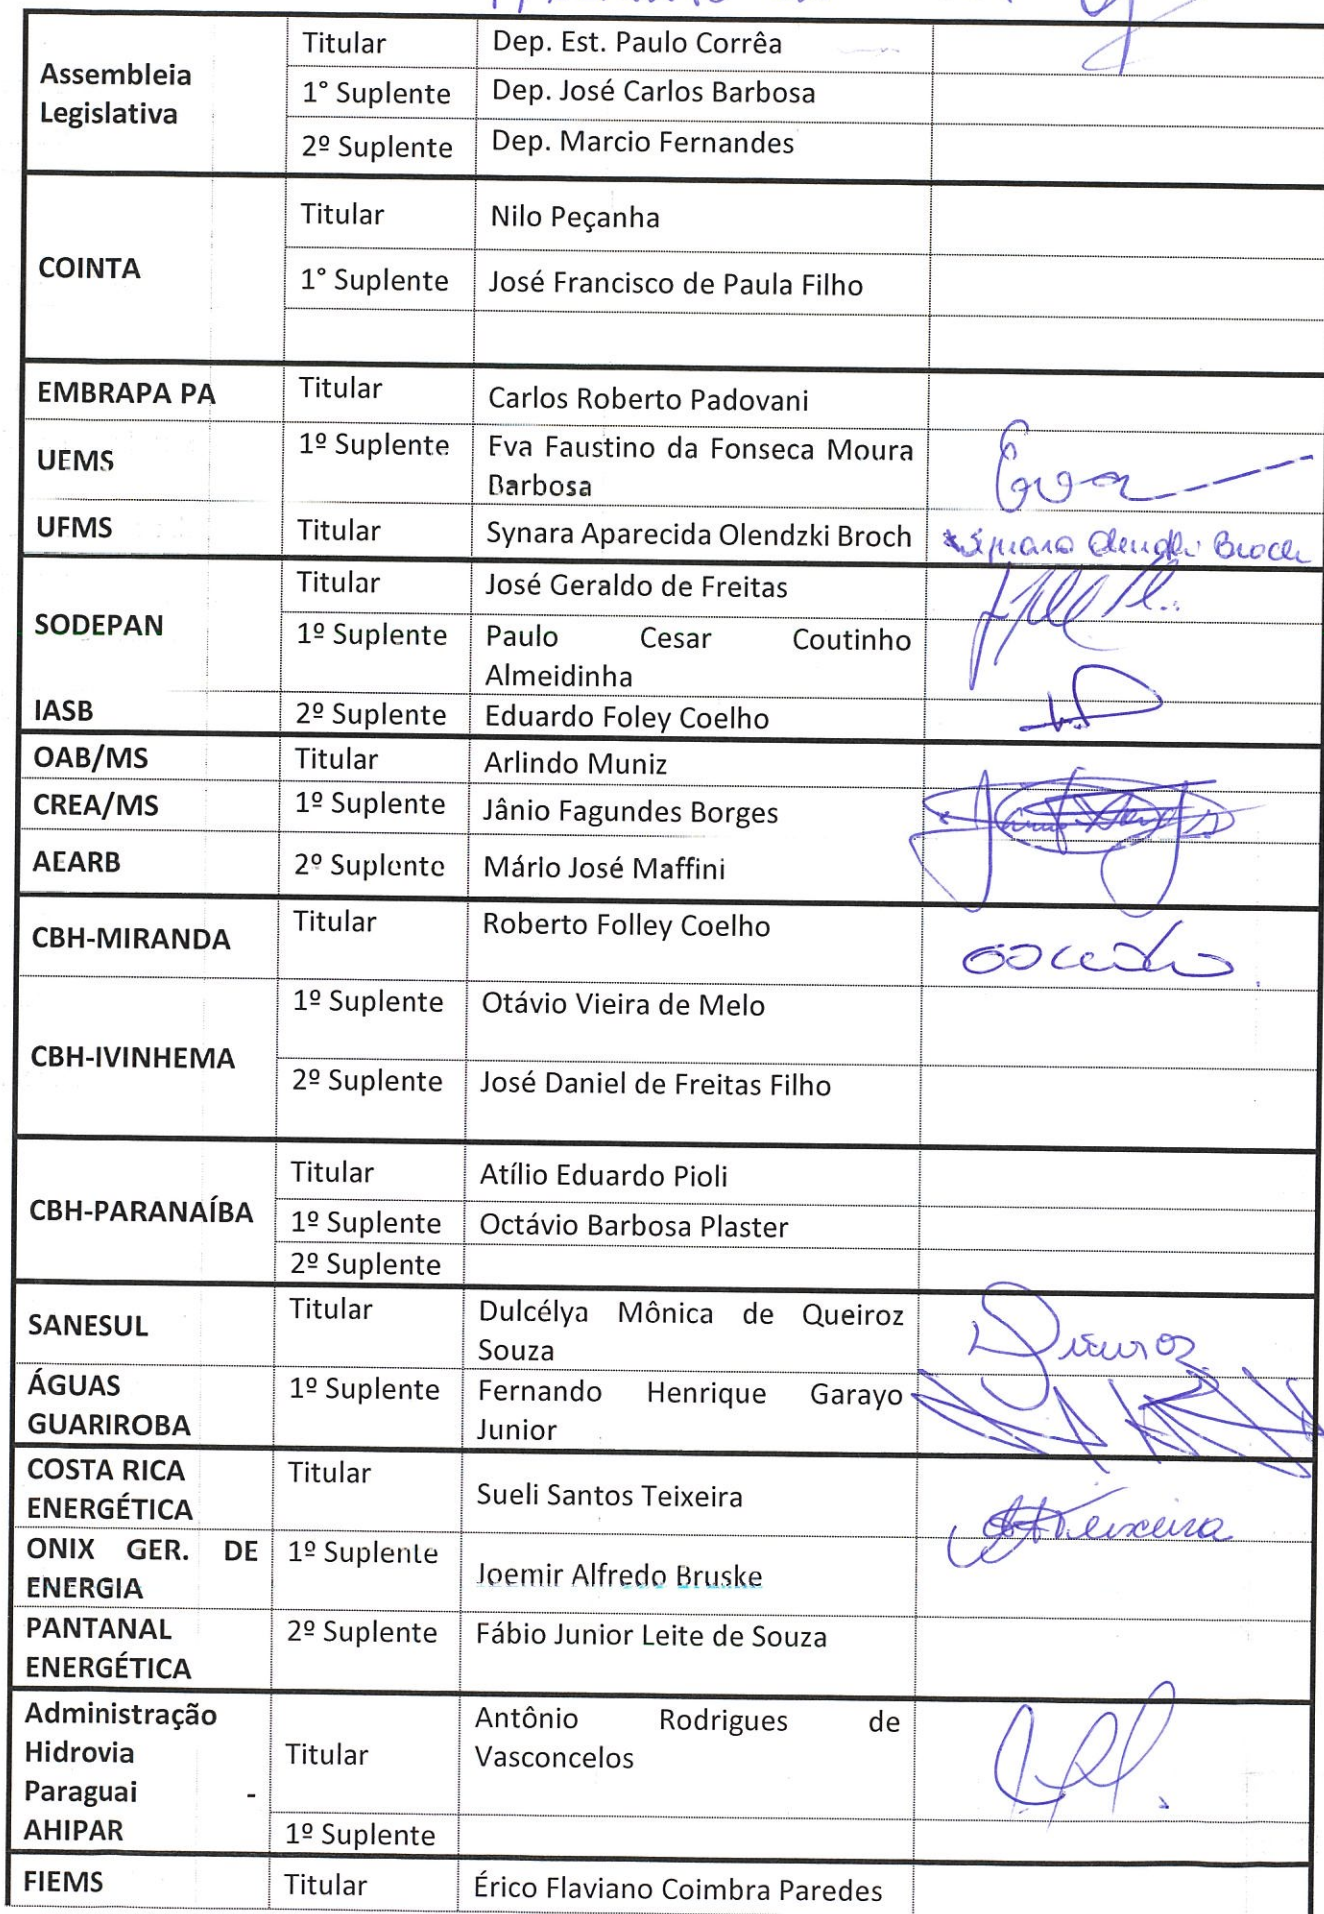 Assembleia Legislativa
Titular Dep. Est. Paulo Corrêa
1° Suplente Dep. José Carlos Barbosa
2º Suplente Dep. Marcio Fernandes
COINTA
Titular Nilo Peçanha
1° Suplente José Francisco de Paula Filho
EMBRAPA PA Titular Carlos Roberto Padovani
UEMS 1º Suplente Eva Faustino da Fonseca Moura
Barbosa
Eva
UFMS Titular Synara Aparecida Olendzki Broch
Synara Olendzki Broch
SODEPAN
Titular José Geraldo de Freitas
1º Suplente Paulo Cesar Coutinho
Almeidinha
IASB 2º Suplente Eduardo Foley Coelho
OAB/MS Titular Arlindo Muniz
CREA/MS 1º Suplente Jânio Fagundes Borges
AEARB 2º Suplente Mário José Maffini
CBH-MIRANDA Titular Roberto Folley Coelho
CBH-IVINHEMA
1º Suplente Otávio Vieira de Melo
2º Suplente José Daniel de Freitas Filho
CBH-PARANAÍBA
Titular Atílio Eduardo Pioli
1º Suplente Octávio Barbosa Plaster
2º Suplente
SANESUL Titular Dulcélya Mônica de Queiroz
Souza
Queiroz
ÁGUAS 1º Suplente Fernando Henrique Garayo
GUARIROBA Junior
COSTA RICA Titular
ENERGÉTICA Sueli Santos Teixeira
Teixeira
ONIX GER. DE 1º Suplente
ENERGIA Joemir Alfredo Bruske
PANTANAL 2º Suplente Fábio Junior Leite de Souza
ENERGÉTICA
Administração
Hidrovia
Paraguai -
AHIPAR
Titular Antônio Rodrigues de
Vasconcelos
1º Suplente
FIEMS Titular Érico Flaviano Coimbra Paredes